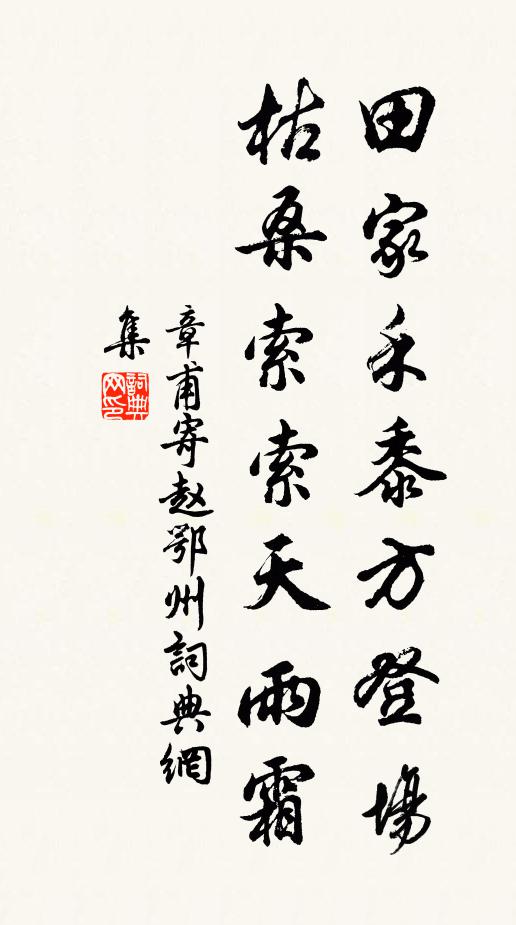 田家禾黍方登場
枯桑索索天雨霜
章甫寄赵鄂州詞典網
集
詞典网印